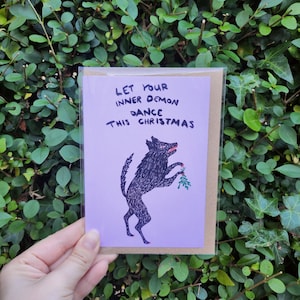 LET YOUR
INNER DEMON
DANCE
THIS CHRISTMAS